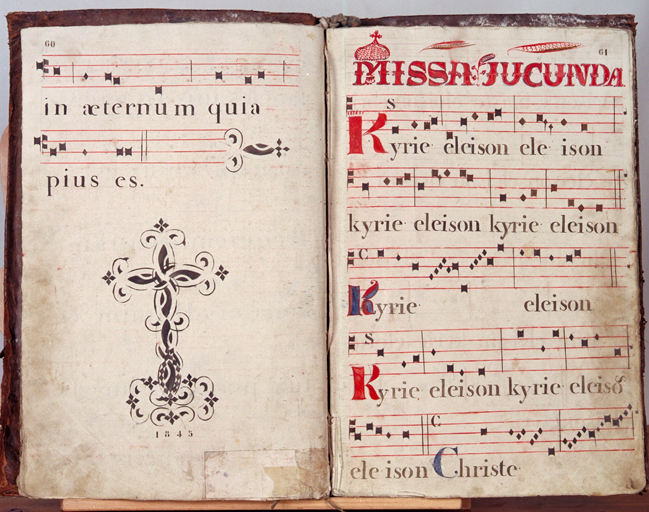 60
in æternum quia
pius es.
1845
61
MISSA JUCUNDA
S
Kyrie eleison ele ison
kyrie eleison kyrie eleison
C
Kyrie eleison
S
Kyrie eleison kyrie eleisō
C
ele ison Christe